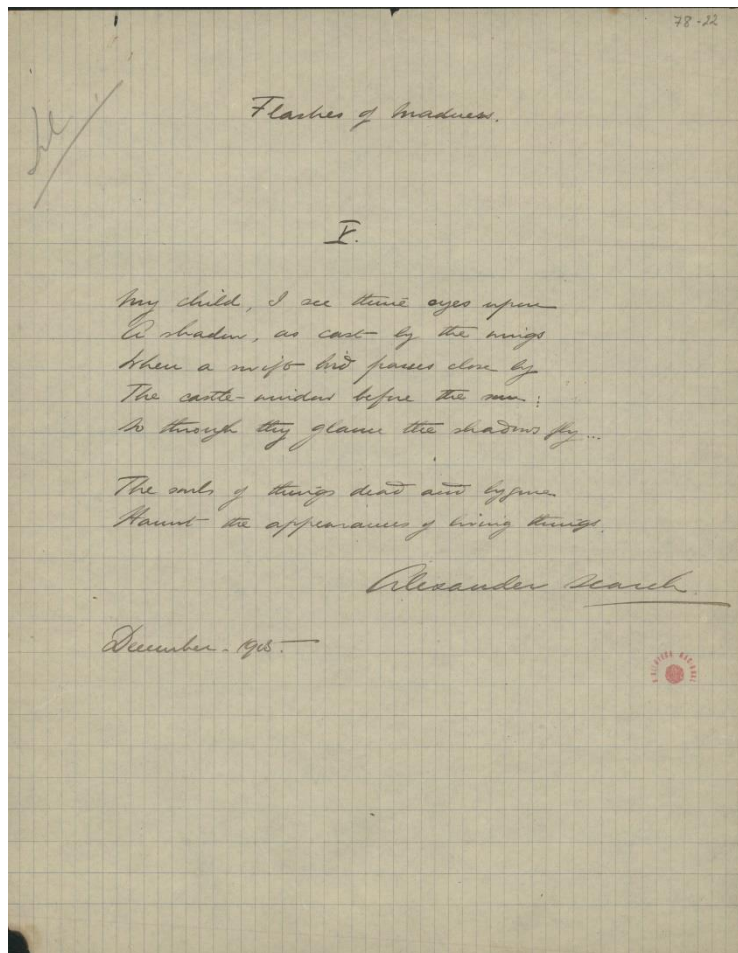 78-22
Flashes of Madness.
V.
My child, I see thine eyes upon
A shadow, as cast by the wings
When a swift bird passes close by
The castle-window before the sun:
So through thy glance the shadows fly...
The souls of things dead and bygone
Haunt the appearances of living things.
Alexander Search.
December - 1905.